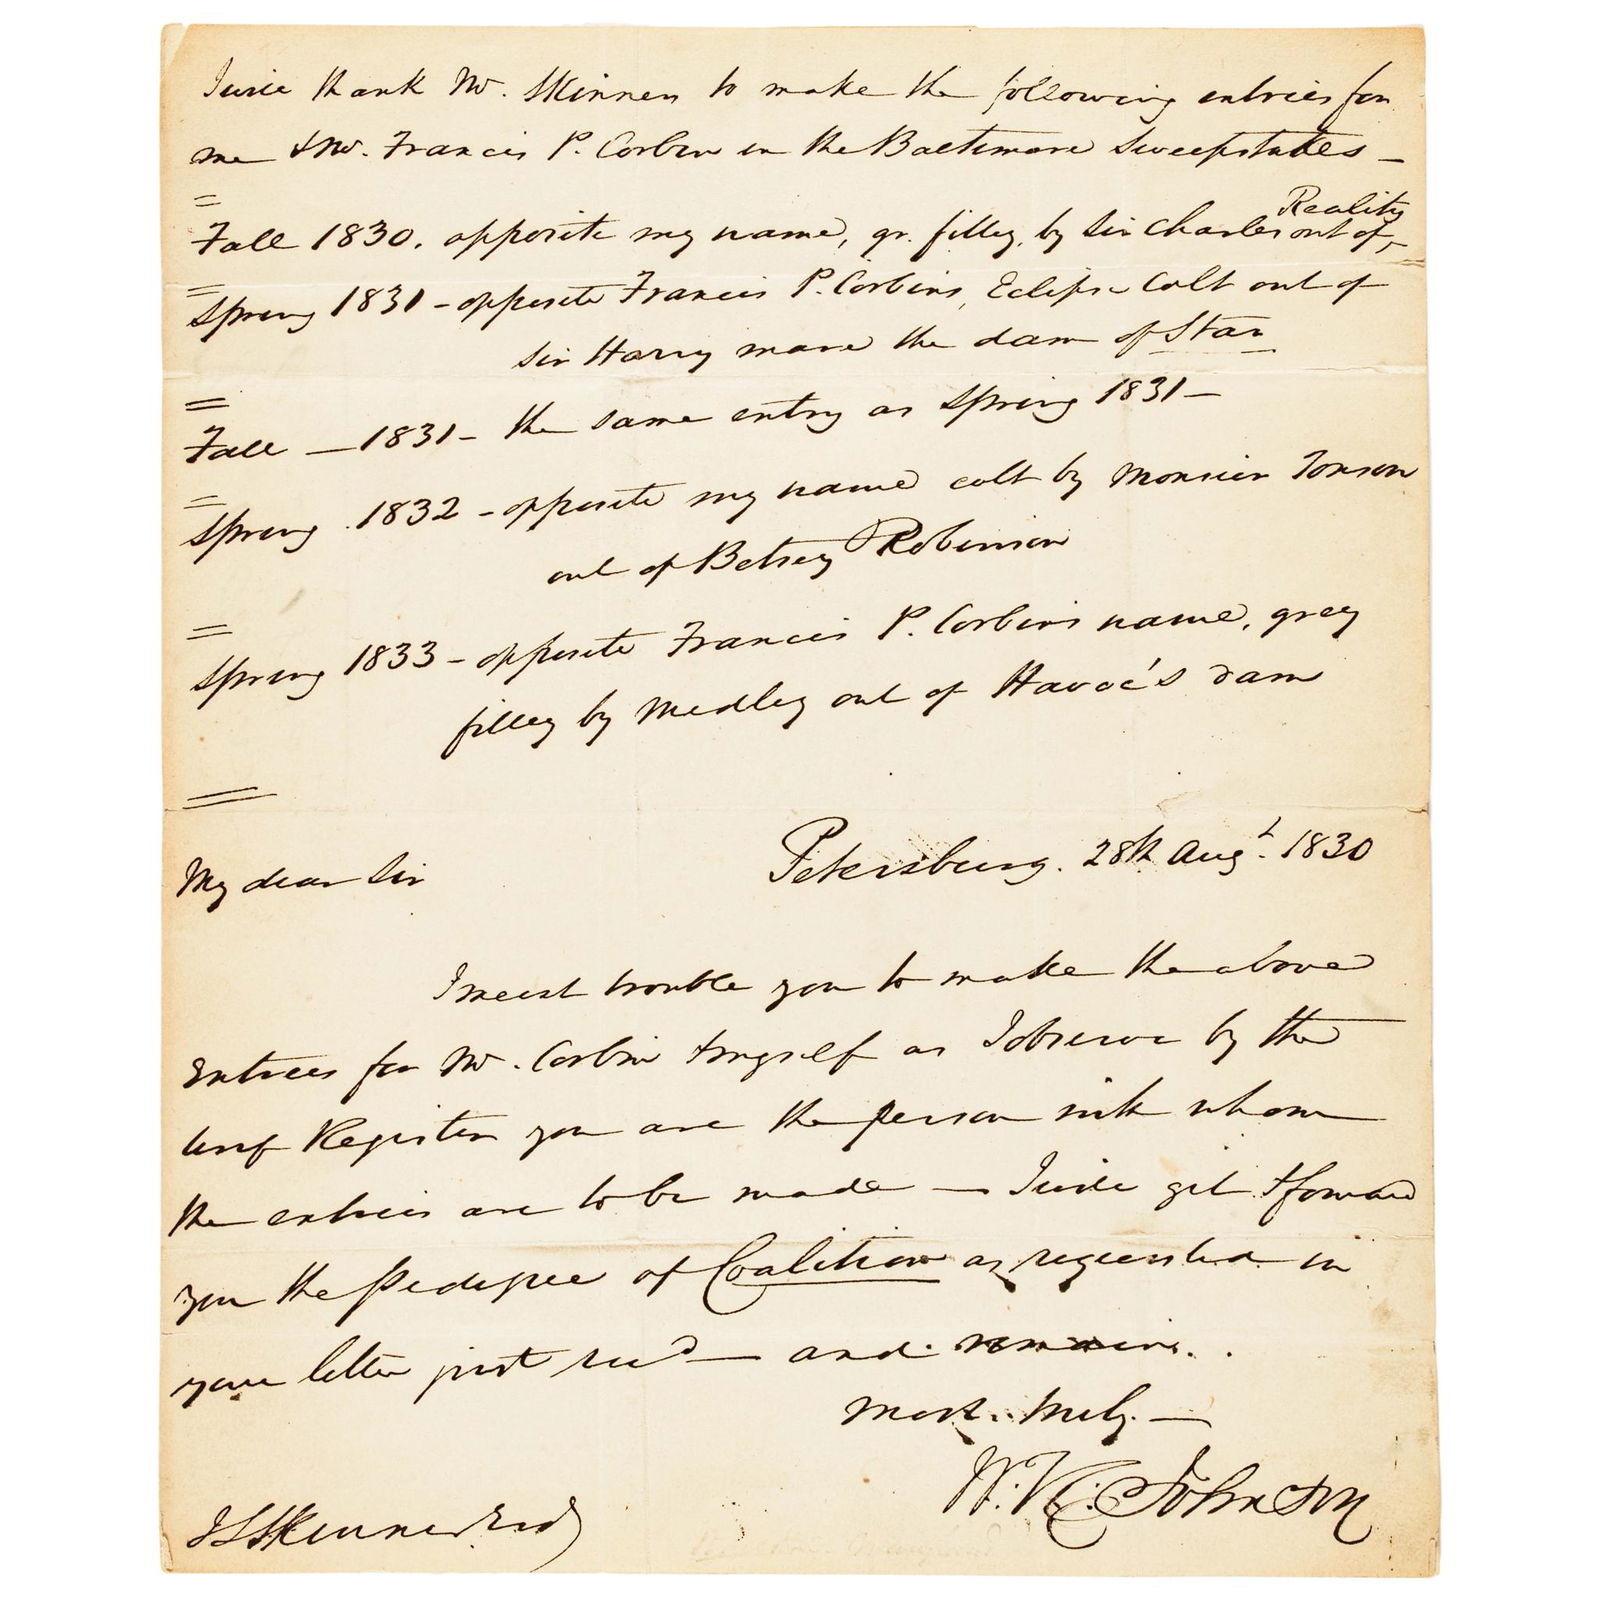 I will thank Mr. Skinner to make the following entries for
me & Mr. Francis P. Corbin in the Baltimore Sweepstakes —
Fall 1830. opposite my name, gr. filley, by Sir Charles out of, Reality
Spring 1831 - opposite Francis P. Corbins, Eclipse Colt out of
Sir Harry mare the dam of Star
Fall — 1831 - the same entry as Spring 1831 —
Spring 1832 - opposite my name colt by Monsieur Tonson
out of Betsey Robinson
Spring 1833 - opposite Francis P. Corbins name, grey
filley by Medley out of Havoc's dam
Petersburg. 28th Augt. 1830
My dear Sir
I must trouble you to make the above
Entries for Mr. Corbin & myself as I observe by the
turf Register you are the person with whom
the entries are to be made — I will get & forward
you the Pedigree of Coalition as requested in
your letter just recd — and remain.
Most. truly. —
W. R. Johnson
J S Skinner Esqr